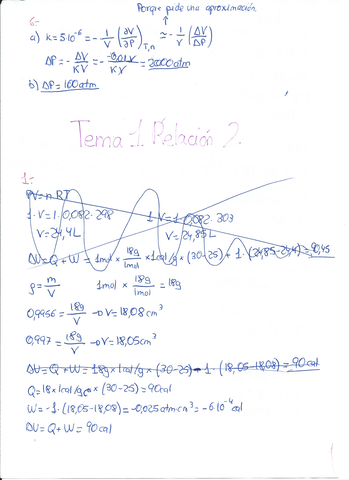 Porque pide una aproximación
6-
a) K = 5·10⁻⁶ = -1/V (∂V/∂P)T,n ≃ -1/V (ΔV/ΔP)
ΔP = -ΔV/KV = - -0,01V/KV = 2000 atm
b) ΔP = 160 atm
Tema 1. Relación 2.
1-
PV = nRT
1·V = 1·0,082·298 1·V = 1·0,082·303
V = 24,4L V = 24,85L
ΔU = Q + W = 1mol × 18g/1mol × 1cal/g × (30-25) + 1·(24,85-24,4) = 90,45
ρ = m/V 1mol × 18g/1mol = 18g
0,9956 = 18g/V → V = 18,08 cm³
0,997 = 18g/V → V = 18,05 cm³
ΔU = Q + W = 18g × 1cal/g × (30-25) - 1·(18,05-18,08) = 90 cal
Q = 18 × 1cal/gºC × (30-25) = 90 cal
W = -1·(18,05-18,08) = -0,025 atm cm³ = -6·10⁻⁴ cal
ΔU = Q + W = 90 cal